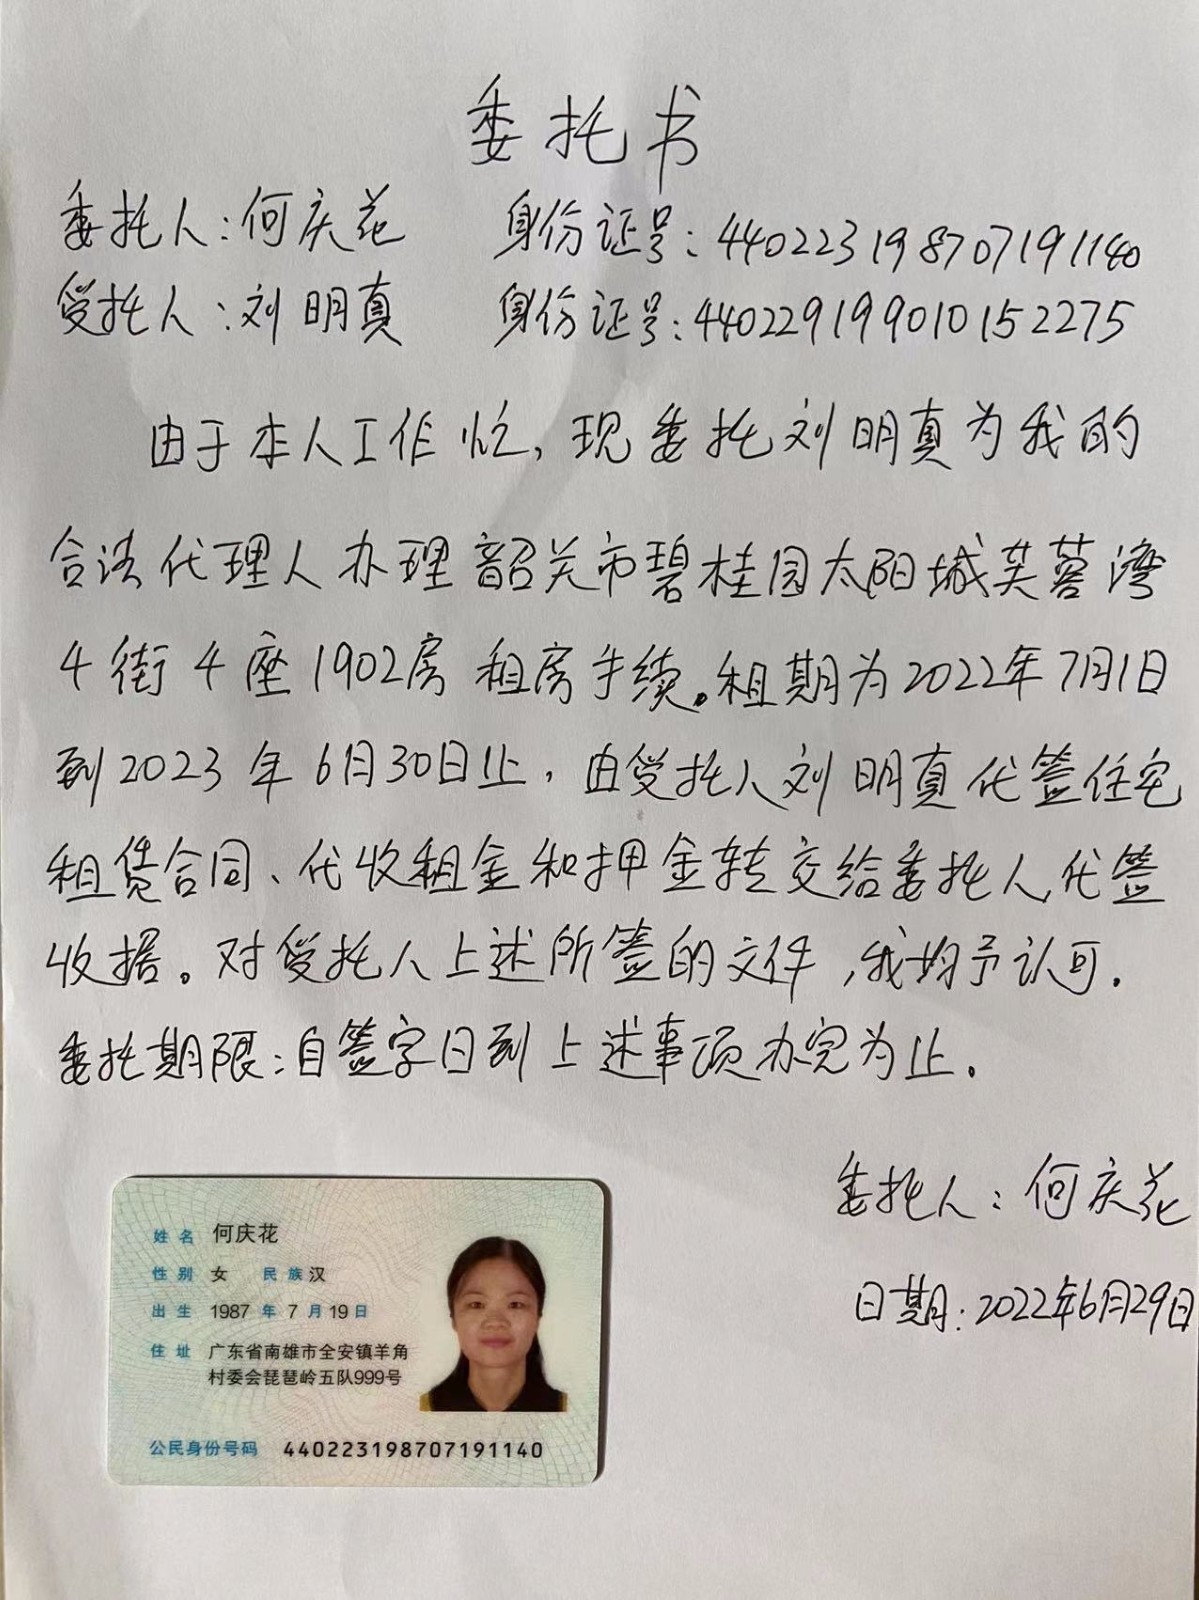 委托书
委托人：何庆花 身份证号：440223198707191140
受托人：刘明真 身份证号：440229199010152275
由于本人工作忙，现委托刘明真为我的
合法代理人办理韶关市碧桂园太阳城芙蓉湾
4街4座1902房租房手续。租期为2022年7月1日
到2023年6月30日止，由受托人刘明真代签住宅
租赁合同、代收租金和押金转交给委托人，代签
收据。对受托人上述所签的文件，我均予认可.
委托期限：自签字日到上述事项办完为止.
委托人：何庆花
日期：2022年6月29日
姓名 何庆花
性别 女 民族 汉
出生 1987年7月19日
住址 广东省南雄市全安镇羊角
村委会琵琶岭五队999号
公民身份号码 440223198707191140